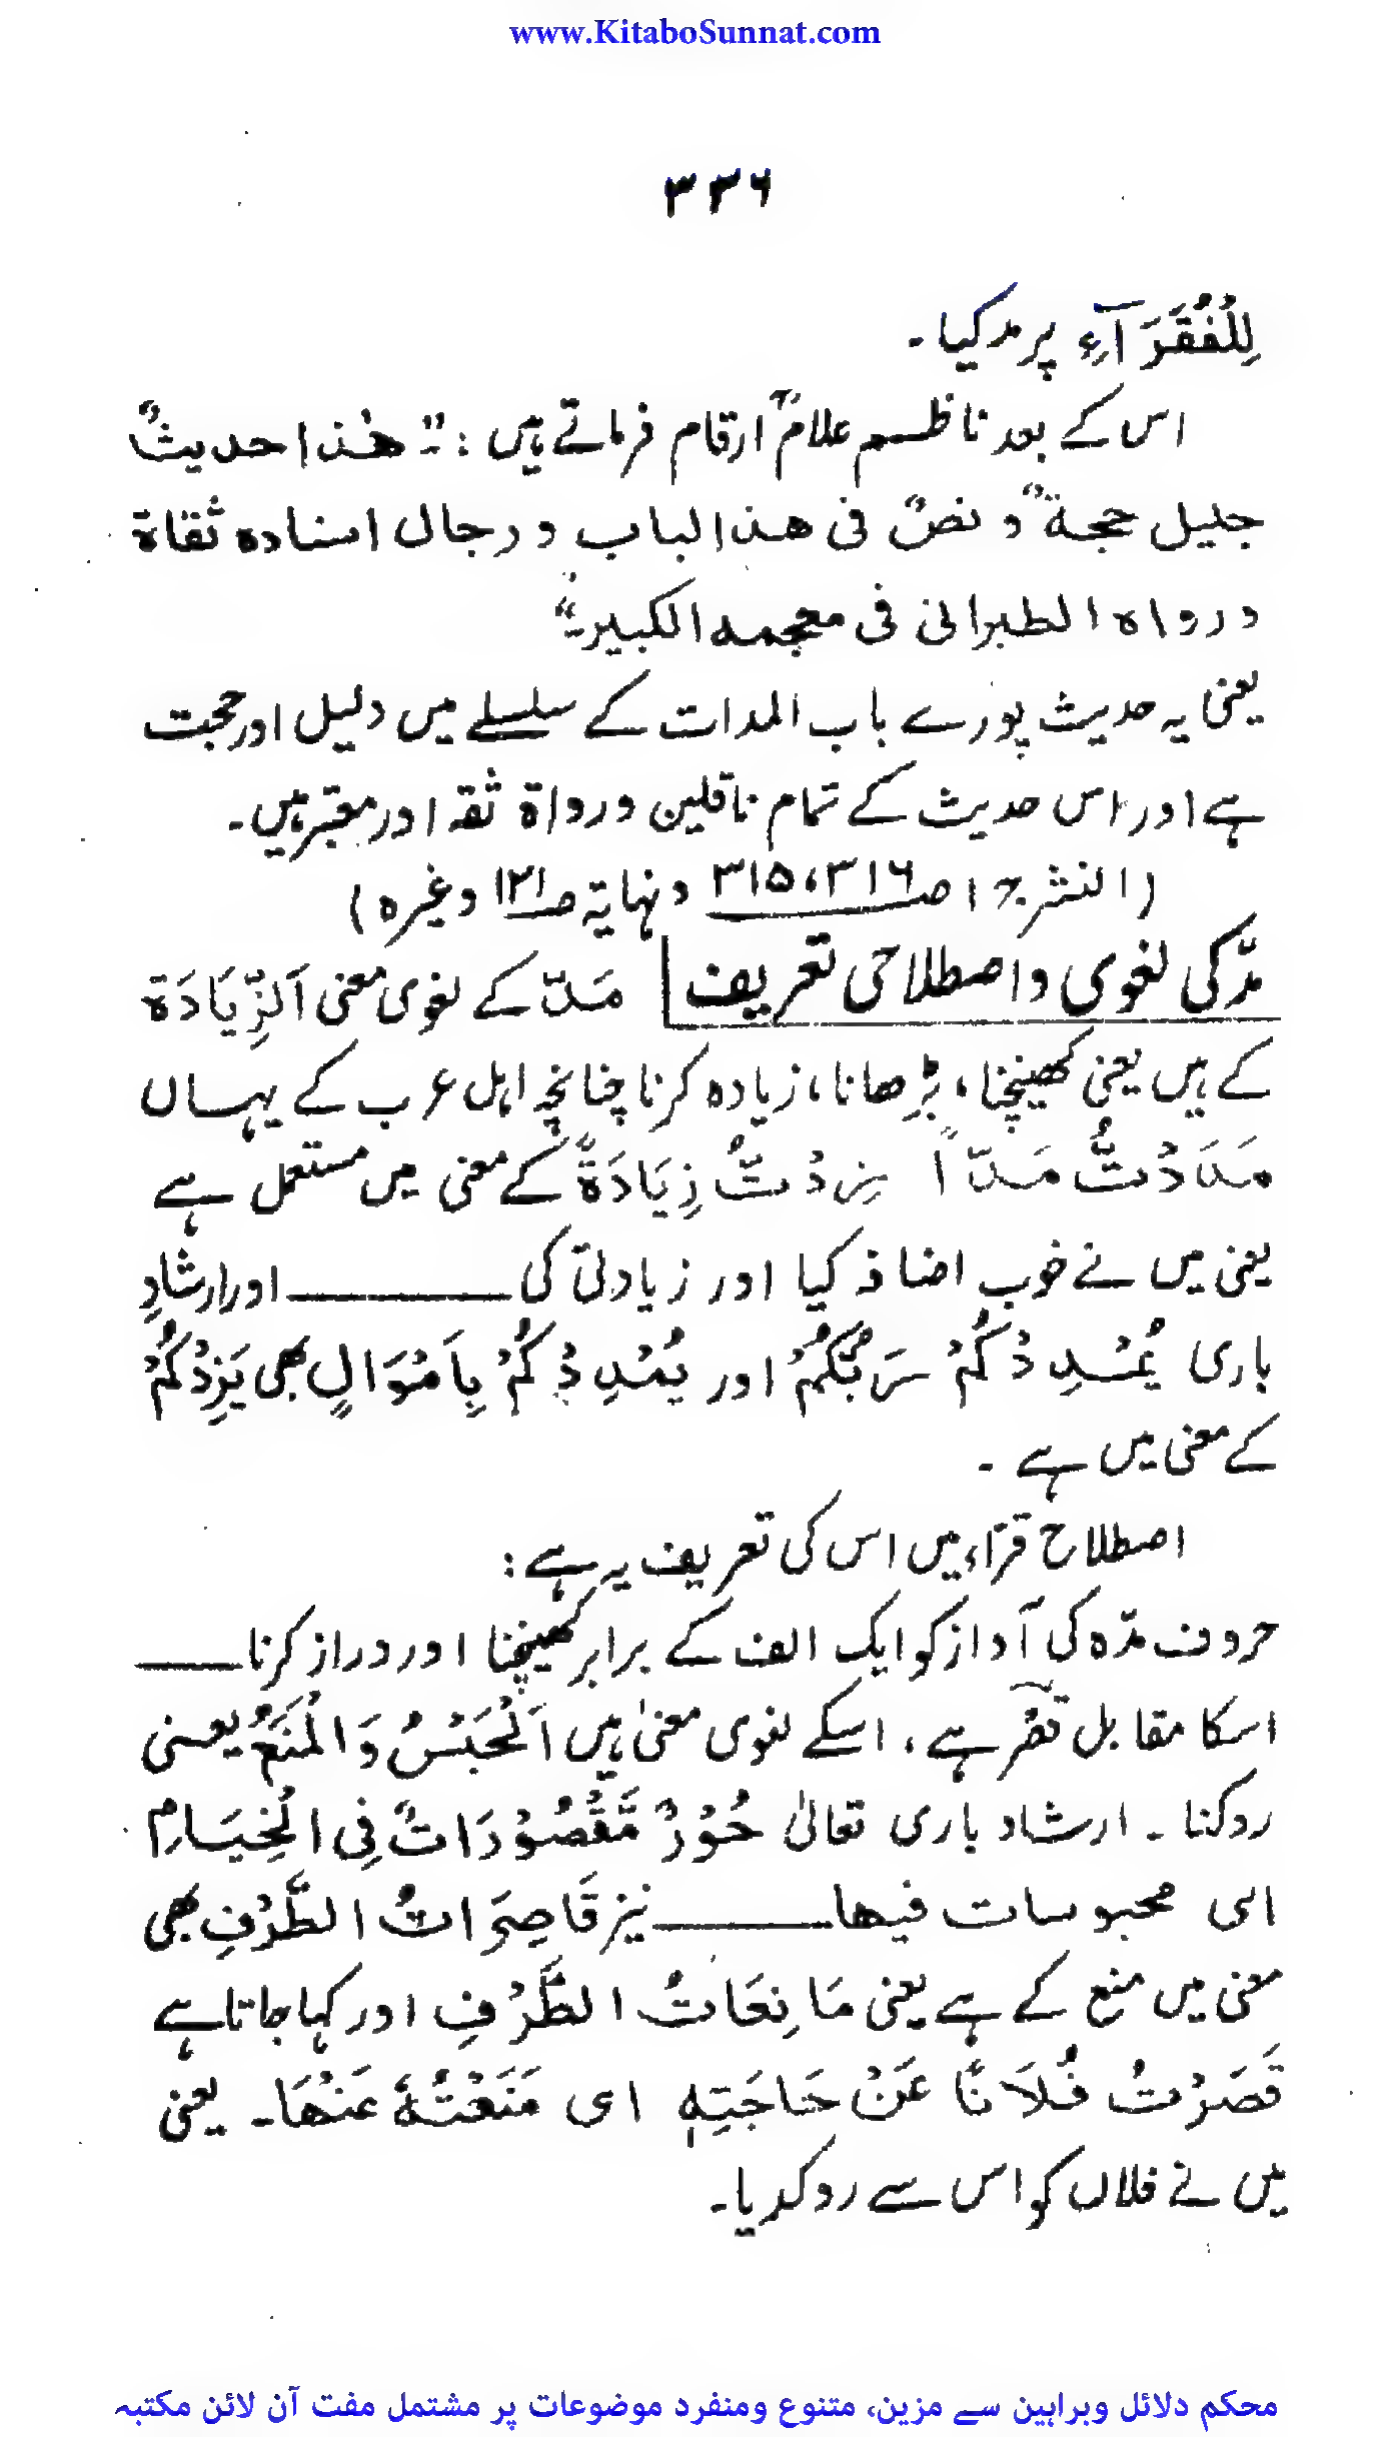 www.KitaboSunnat.com
۳۳۶
لِلْفُقَرَآءِ پر مد کیا ۔
اس کے بعد ناظم علامؒ ارقام فرماتے ہیں : ۔" ھٰذا حدیثٌ
جلیل حجۃٌ و نصٌ فی ھذا الباب و رجال اسنادہ ثقاۃ
ورواہ الطبرانی فی معجمہ الکبیر۔"
یعنی یہ حدیث پورے باب المدات کے سلسلے میں دلیل اور حجت
ہے اور اس حدیث کے تمام ناقلین ورواۃ ثقہ اور معتبر ہیں۔
(النشر ج ۱ صـ ۳۱۵،۳۱۶ و نہایۃ صـ ۱۲۱ وغیرہ)
مدّ کی لغوی و اصطلاحی تعریف مَدّ کے لغوی معنی اَلزِّیَادَۃ
کے ہیں یعنی کھینچنا، بڑھانا، زیادہ کرنا چنانچہ اہل عرب کے یہاں
مَدَدْتُّ مَدّاً زِدْتُّ زِیَادَۃً کے معنی میں مستعمل ہے
یعنی میں نے خوب اضافہ کیا اور زیادتی کی ــــــــ اور ارشادِ
باری یُمْدِدْکُمْ رَبُّکُمْ اور یُمْدِدْکُمْ بِاَمْوَالٍ بھی یَزِدْکُمْ
کے معنی میں ہے ۔
اصطلاح قرّاء میں اس کی تعریف یہ ہے :
حروف مدّہ کی آواز کو ایک الف کے برابر کھینچنا اور دراز کرنا ــــــ
اسکا مقابل قصر ہے، اسکے لغوی معنیٰ ہیں اَلْحَبْسُ وَالْمَنَعُ یعنی
روکنا ۔ ارشاد باری تعالیٰ حُوْرٌ مَّقْصُوْرَاتٌ فِی الْخِیَامِ
ای محبوسات فیھا ــــــــ نیز قَاصِرَاتُ الطَّرْفِ بھی
معنی میں منع کے ہے یعنی مَانِعَاتُ الطَّرْفِ اور کہا جاتا ہے
قَصَرْتُ فُلَانًا عَنْ حَاجَتِہٖ ای مَنَعْتُہٗ عَنْھَا۔ یعنی
میں نے فلاں کو اس سے روکدیا۔
محکم دلائل وبراہین سے مزین، متنوع ومنفرد موضوعات پر مشتمل مفت آن لائن مکتبہ